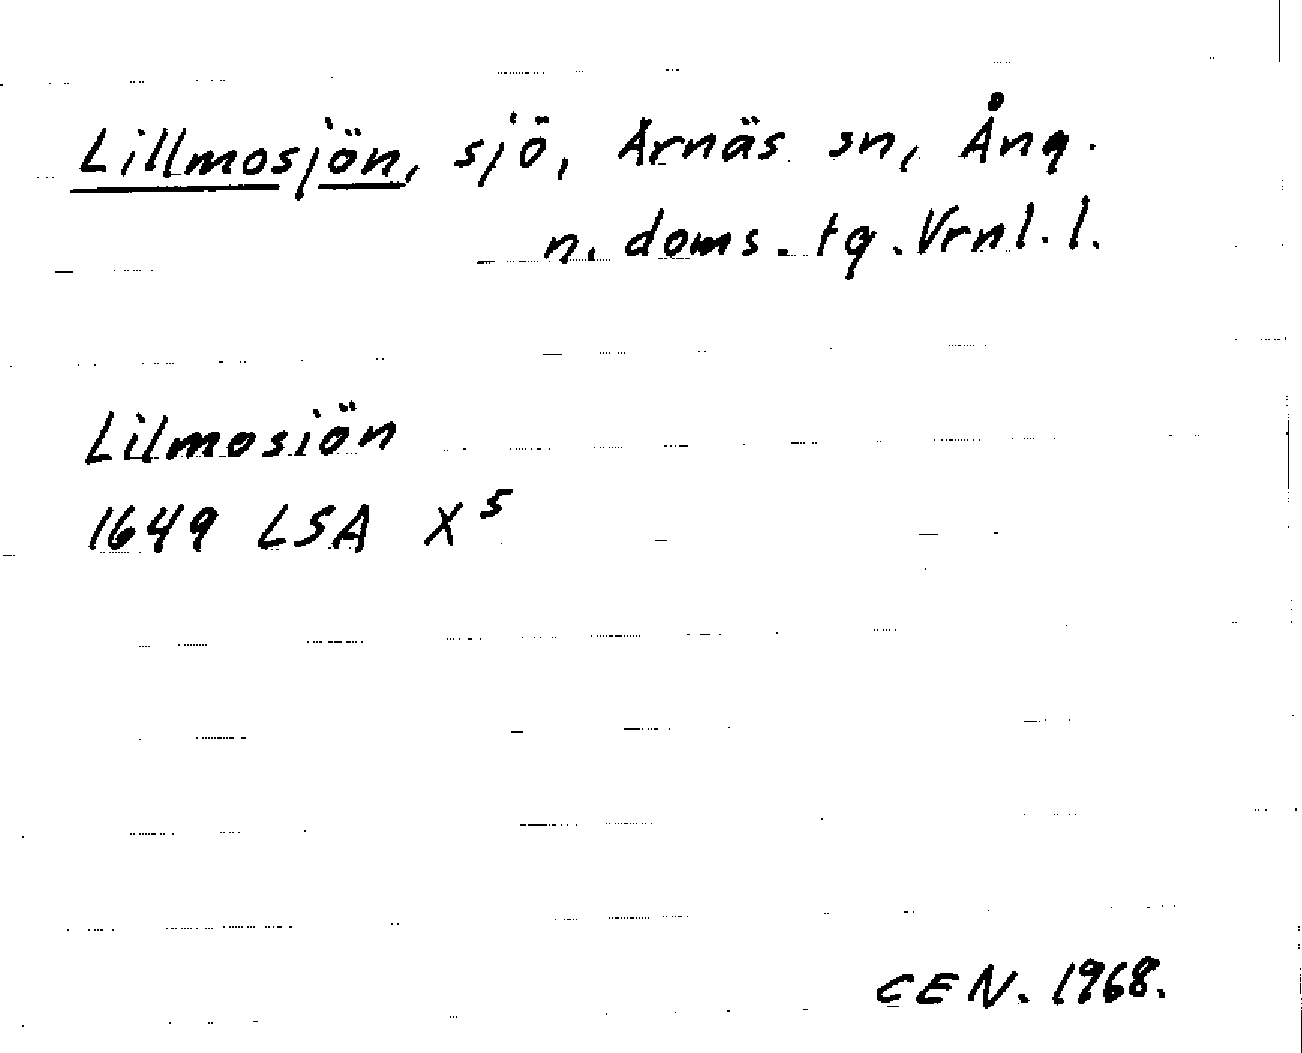 Lillmosjön, sjö, Arnäs sn, Ång.
n. doms. tg. Vrnl. l.
Lilmosiön
1649 LSA X⁵
CEN. 1968.